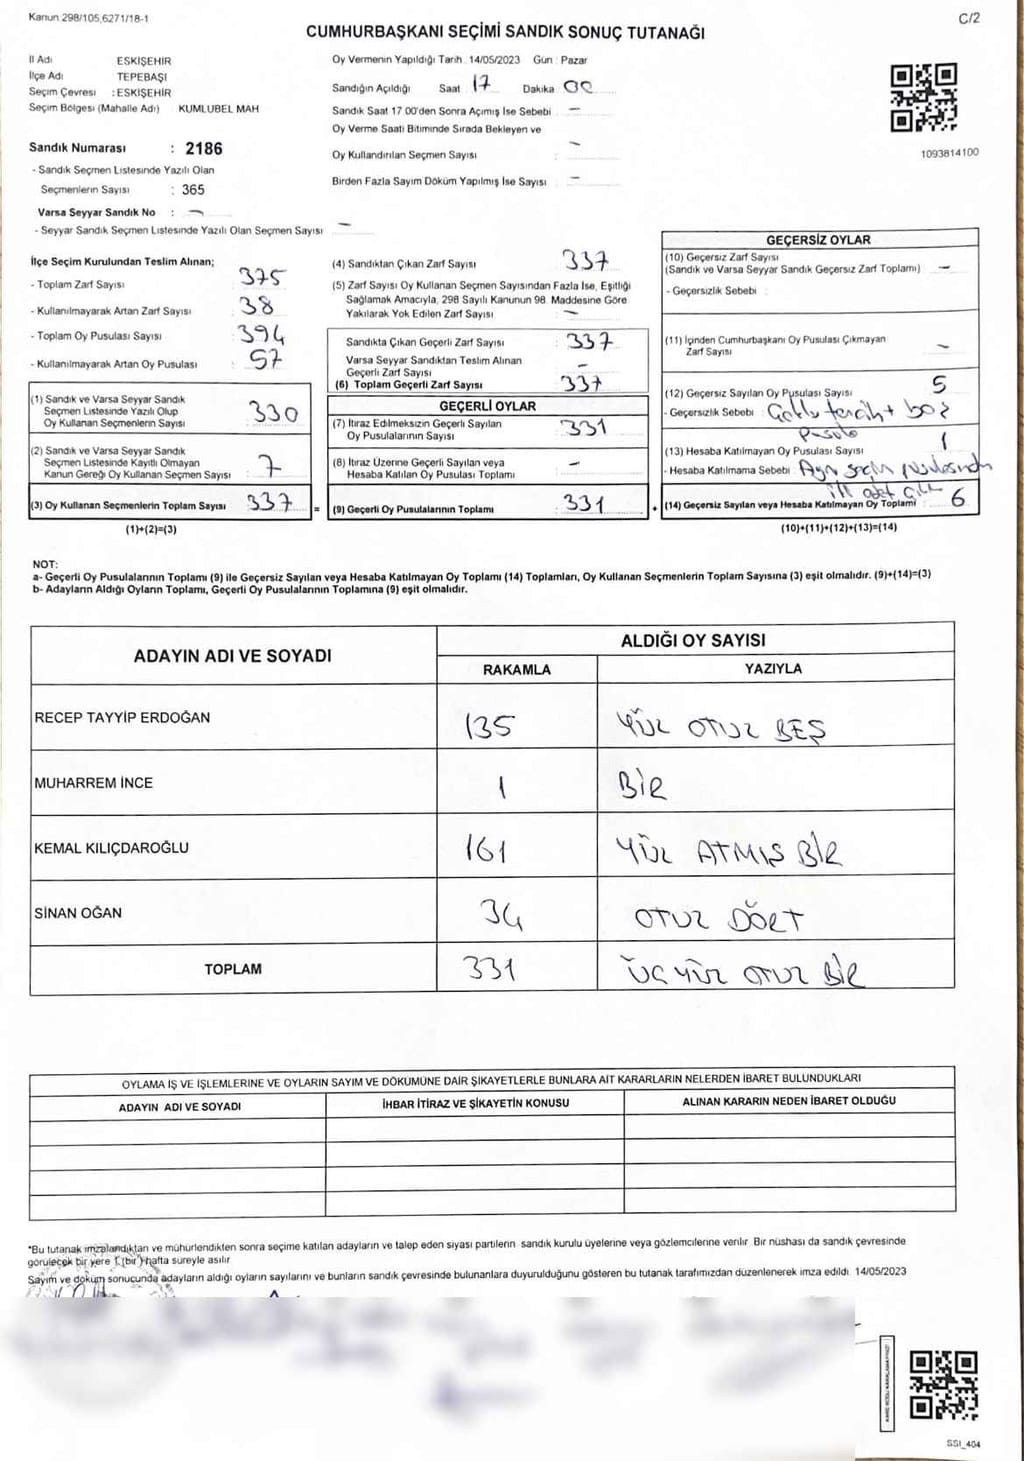 Kanun 298/105,6271/18-1
C/2
CUMHURBAŞKANI SEÇİMİ SANDIK SONUÇ TUTANAĞI
İl Adı ESKİŞEHİR
İlçe Adı TEPEBAŞI
Seçim Çevresi : ESKİŞEHİR
Seçim Bölgesi (Mahalle Adı) KUMLUBEL MAH
Sandık Numarası : 2186
- Sandık Seçmen Listesinde Yazılı Olan
Seçmenlerin Sayısı : 365
Varsa Seyyar Sandık No : —
- Seyyar Sandık Seçmen Listesinde Yazılı Olan Seçmen Sayısı —
Oy Vermenin Yapıldığı Tarih 14/05/2023 Gün : Pazar
Sandığın Açıldığı Saat 17 Dakika 00
Sandık Saat 17 00'den Sonra Açımış İse Sebebi —
Oy Verme Saati Bitiminde Sırada Bekleyen ve
Oy Kullandırılan Seçmen Sayısı : —
Birden Fazla Sayım Döküm Yapılmış İse Sayısı : —
1093814100
İlçe Seçim Kurulundan Teslim Alınan;
- Toplam Zarf Sayısı : 375
- Kullanılmayarak Artan Zarf Sayısı : 38
- Toplam Oy Pusulası Sayısı : 394
- Kullanılmayarak Artan Oy Pusulası : 57
(1) Sandık ve Varsa Seyyar Sandık
Seçmen Listesinde Yazılı Olup
Oy Kullanan Seçmenlerin Sayısı : 330
(2) Sandık ve Varsa Seyyar Sandık
Seçmen Listesinde Kayıtlı Olmayan
Kanun Gereği Oy Kullanan Seçmen Sayısı : 7
(3) Oy Kullanan Seçmenlerin Toplam Sayısı : 337 =
(1)+(2)=(3)
(4) Sandıktan Çıkan Zarf Sayısı : 337
(5) Zarf Sayısı Oy Kullanan Seçmen Sayısından Fazla İse, Eşitliği
Sağlamak Amacıyla, 298 Sayılı Kanunun 98. Maddesine Göre
Yakılarak Yok Edilen Zarf Sayısı : —
Sandıkta Çıkan Geçerli Zarf Sayısı : 337
Varsa Seyyar Sandıktan Teslim Alınan
Geçerli Zarf Sayısı : —
(6) Toplam Geçerli Zarf Sayısı : 337
GEÇERLİ OYLAR
(7) İtiraz Edilmeksizin Geçerli Sayılan
Oy Pusulalarının Sayısı : 331
(8) İtiraz Üzerine Geçerli Sayılan veya
Hesaba Katılan Oy Pusulası Toplamı : —
(9) Geçerli Oy Pusulalarının Toplamı : 331 +
GEÇERSİZ OYLAR
(10) Geçersiz Zarf Sayısı
(Sandık ve Varsa Seyyar Sandık Geçersiz Zarf Toplamı) —
- Geçersizlik Sebebi :
(11) İçinden Cumhurbaşkanı Oy Pusulası Çıkmayan
Zarf Sayısı —
(12) Geçersiz Sayılan Oy Pusulası Sayısı 5
- Geçersizlik Sebebi : Çoklu tercih + boş
pusula
(13) Hesaba Katılmayan Oy Pusulası Sayısı 1
- Hesaba Katılmama Sebebi : Aynı seçim pusulasından
adet
(14) Geçersiz Sayılan veya Hesaba Katılmayan Oy Toplamı : 6
(10)+(11)+(12)+(13)=(14)
NOT:
a- Geçerli Oy Pusulalarının Toplamı (9) ile Geçersiz Sayılan veya Hesaba Katılmayan Oy Toplamı (14) Toplamları, Oy Kullanan Seçmenlerin Toplam Sayısına (3) eşit olmalıdır. (9)+(14)=(3)
b- Adayların Aldığı Oyların Toplamı, Geçerli Oy Pusulalarının Toplamına (9) eşit olmalıdır.
ADAYIN ADI VE SOYADI
ALDIĞI OY SAYISI
RAKAMLA YAZIYLA
RECEP TAYYİP ERDOĞAN 135 YÜZ OTUZ BEŞ
MUHARREM İNCE 1 BİR
KEMAL KILIÇDAROĞLU 161 YÜZ ATMIŞ BİR
SİNAN OĞAN 34 OTUZ DÖRT
TOPLAM 331 ÜÇYÜZ OTUZ BİR
OYLAMA İŞ VE İŞLEMLERİNE VE OYLARIN SAYIM VE DÖKÜMÜNE DAİR ŞİKAYETLERLE BUNLARA AİT KARARLARIN NELERDEN İBARET BULUNDUKLARI
ADAYIN ADI VE SOYADI İHBAR İTİRAZ VE ŞİKAYETİN KONUSU ALINAN KARARIN NEDEN İBARET OLDUĞU
*Bu tutanak imzalandıktan ve mühürlendikten sonra seçime katılan adayların ve talep eden siyasi partilerin sandık kurulu üyelerine veya gözlemcilerine verilir. Bir nüshası da sandık çevresinde
görülecek bir yere 1 (bir) hafta süreyle asılır
Sayım ve döküm sonucunda adayların aldığı oyların sayılarını ve bunların sandık çevresinde bulunanlara duyurulduğunu gösteren bu tutanak tarafımızdan düzenlenerek imza edildi. 14/05/2023
SSI_404